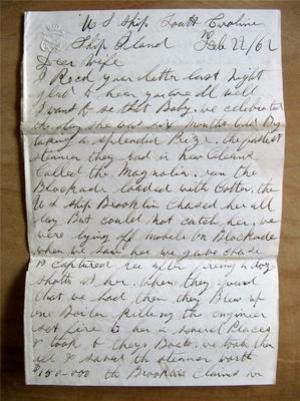 U S Ship South Caroline
Ship Island Feb 22/62
Dear Wife
I Recd your letter last night
glad to hear you are all well
I want to se that Baby. we celebrated
the day she was six months old By
taking a splendid Prize. the fastest
steamer they had in New Orleans
Called the Magnolia. run the
Blockade loaded with Cotton. the
U S Ship Brooklin Chased her all
day But could not catch her. we
were lying off mobile on Blockade
when we saw her we gave chase
& captured her after firing a doz
shots at her. when they found
that we had them they Blew up
one Boiler killing the engineer
set fire to her in several Places
& took to theys Boats. we took them
all & saved the steamer worth
$150-000 the Brooklin Claims in